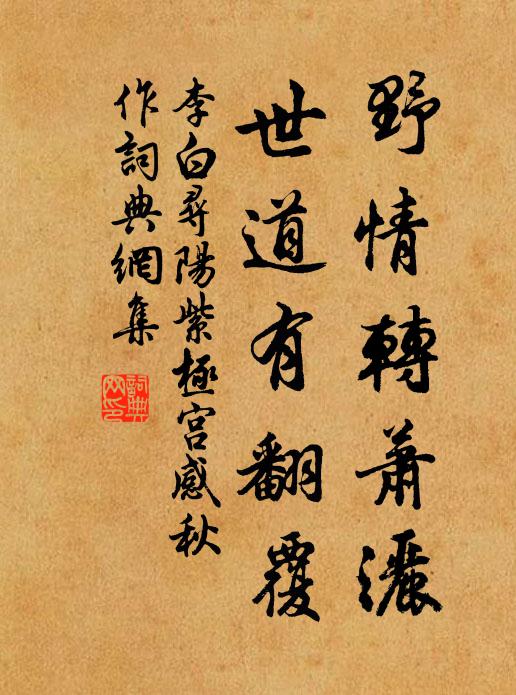 野情轉蕭灑
世道有翻覆
李白尋陽紫極宮感秋
作詞典網集
詞典网印